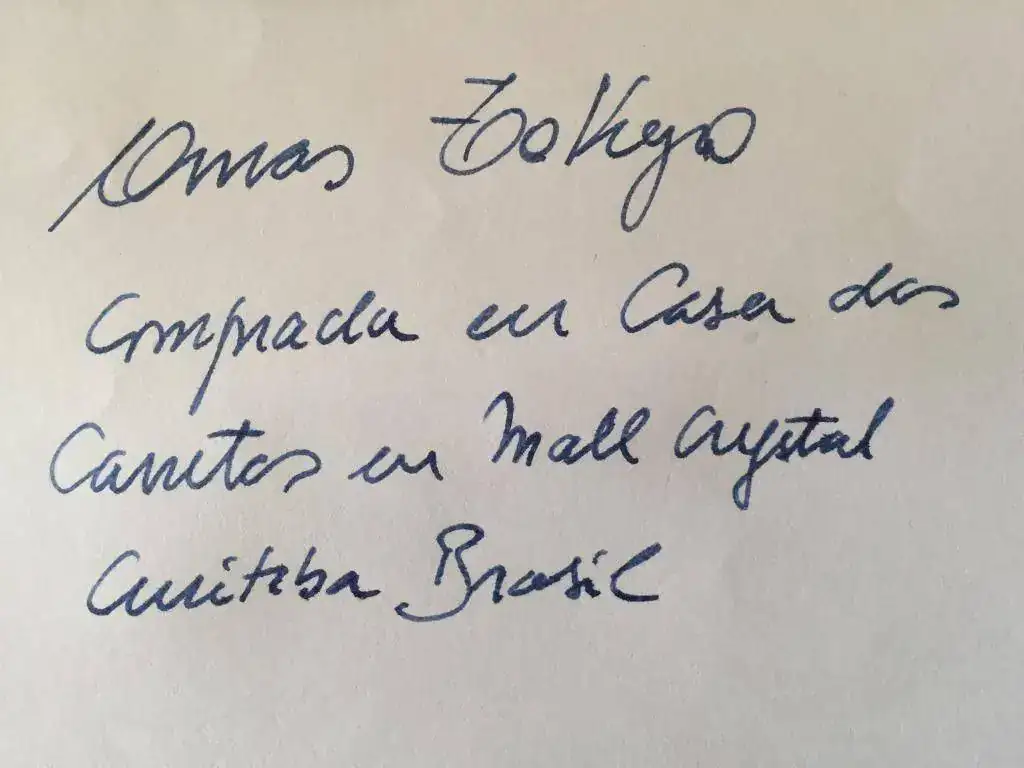 Omas Tokyo
Comprada en Casa das
Canetas en Mall Crystal
Curitiba Brasil